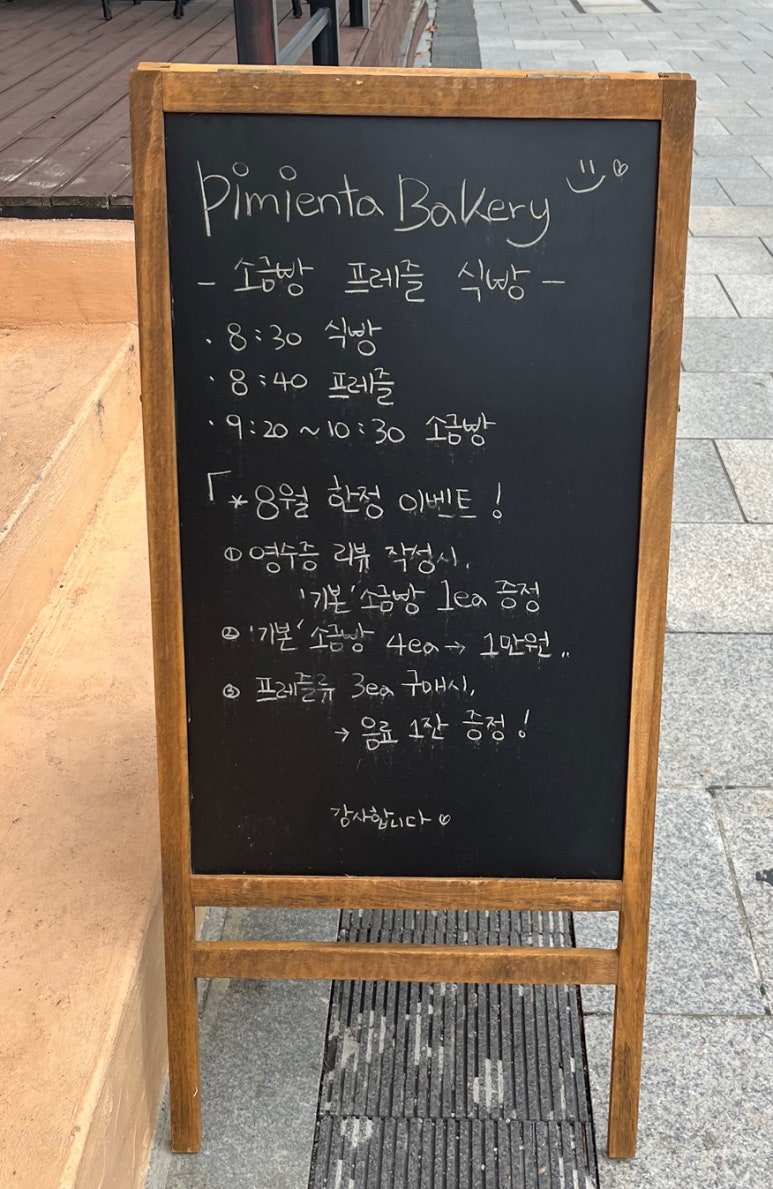 Pimienta Bakery
- 소금빵 프레즐 식빵 -
· 8:30 식빵
· 8:40 프레즐
· 9:20 ~ 10:30 소금빵
「 * 8월 한정 이벤트 !
① 영수증 리뷰 작성시,
'기본' 소금빵 1ea 증정
② '기본' 소금빵 4ea → 1만원..
③ 프레즐류 3ea 구매시,
→ 음료 1잔 증정 !
감사합니다 ♡